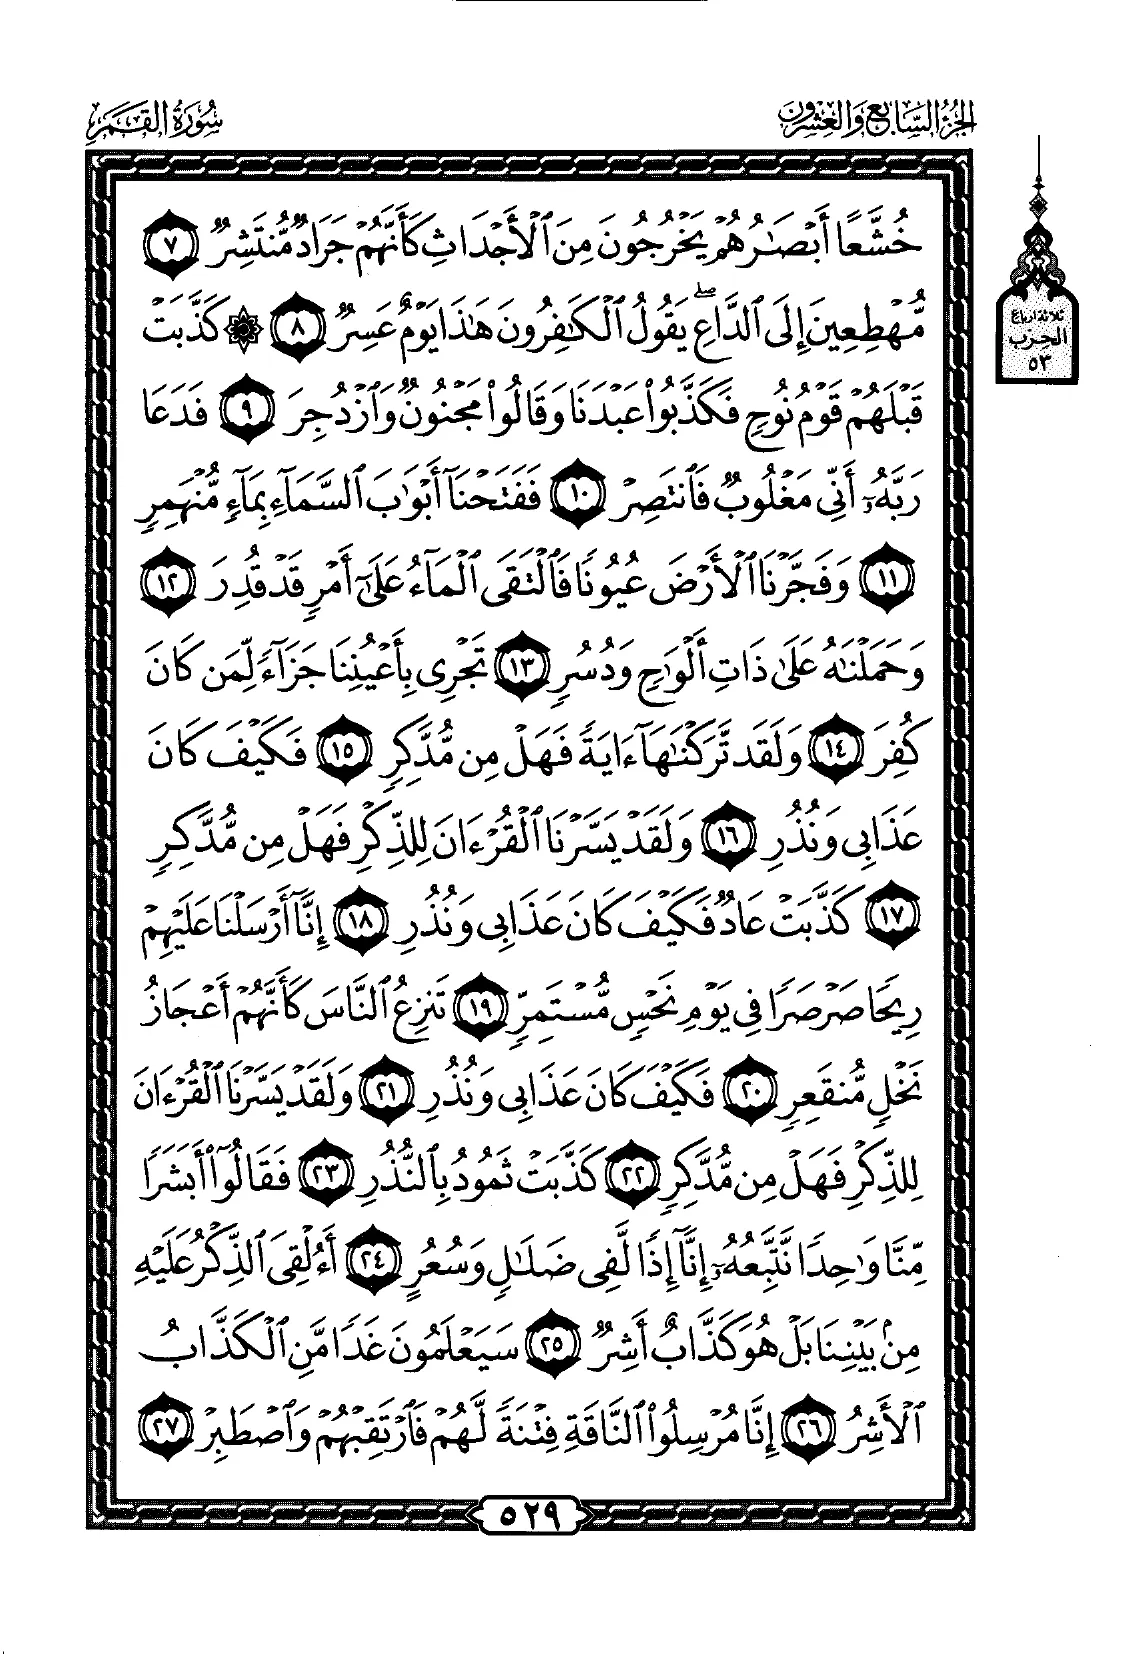 الجزء السابع والعشرون
سورة القمر
خُشَّعًا أَبْصَٰرُهُمْ يَخْرُجُونَ مِنَ ٱلْأَجْدَاثِ كَأَنَّهُمْ جَرَادٌ مُّنتَشِرٌ ٧
مُّهْطِعِينَ إِلَى ٱلدَّاعِ ۖ يَقُولُ ٱلْكَٰفِرُونَ هَٰذَا يَوْمٌ عَسِرٌ ٨ ۞ كَذَّبَتْ
قَبْلَهُمْ قَوْمُ نُوحٍ فَكَذَّبُوا۟ عَبْدَنَا وَقَالُوا۟ مَجْنُونٌ وَٱزْدُجِرَ ٩ فَدَعَا
رَبَّهُۥٓ أَنِّى مَغْلُوبٌ فَٱنتَصِرْ ١٠ فَفَتَحْنَآ أَبْوَٰبَ ٱلسَّمَآءِ بِمَآءٍ مُّنْهَمِرٍ
١١ وَفَجَّرْنَا ٱلْأَرْضَ عُيُونًا فَٱلْتَقَى ٱلْمَآءُ عَلَىٰٓ أَمْرٍ قَدْ قُدِرَ ١٢
وَحَمَلْنَٰهُ عَلَىٰ ذَاتِ أَلْوَٰحٍ وَدُسُرٍ ١٣ تَجْرِى بِأَعْيُنِنَا جَزَآءً لِّمَن كَانَ
كُفِرَ ١٤ وَلَقَد تَّرَكْنَٰهَآ ءَايَةً فَهَلْ مِن مُّدَّكِرٍ ١٥ فَكَيْفَ كَانَ
عَذَابِى وَنُذُرِ ١٦ وَلَقَدْ يَسَّرْنَا ٱلْقُرْءَانَ لِلذِّكْرِ فَهَلْ مِن مُّدَّكِرٍ
١٧ كَذَّبَتْ عَادٌ فَكَيْفَ كَانَ عَذَابِى وَنُذُرِ ١٨ إِنَّآ أَرْسَلْنَا عَلَيْهِمْ
رِيحًا صَرْصَرًا فِى يَوْمِ نَحْسٍ مُّسْتَمِرٍّ ١٩ تَنزِعُ ٱلنَّاسَ كَأَنَّهُمْ أَعْجَازُ
نَخْلٍ مُّنقَعِرٍ ٢٠ فَكَيْفَ كَانَ عَذَابِى وَنُذُرِ ٢١ وَلَقَدْ يَسَّرْنَا ٱلْقُرْءَانَ
لِلذِّكْرِ فَهَلْ مِن مُّدَّكِرٍ ٢٢ كَذَّبَتْ ثَمُودُ بِٱلنُّذُرِ ٢٣ فَقَالُوٓا۟ أَبَشَرًا
مِّنَّا وَٰحِدًا نَّتَّبِعُهُۥٓ إِنَّآ إِذًا لَّفِى ضَلَٰلٍ وَسُعُرٍ ٢٤ أَءُلْقِىَ ٱلذِّكْرُ عَلَيْهِ
مِنۢ بَيْنِنَا بَلْ هُوَ كَذَّابٌ أَشِرٌ ٢٥ سَيَعْلَمُونَ غَدًا مَّنِ ٱلْكَذَّابُ
ٱلْأَشِرُ ٢٦ إِنَّا مُرْسِلُوا۟ ٱلنَّاقَةِ فِتْنَةً لَّهُمْ فَٱرْتَقِبْهُمْ وَٱصْطَبِرْ ٢٧
ثلاثة أرباع
الحزب
٥٣
٥٢٩